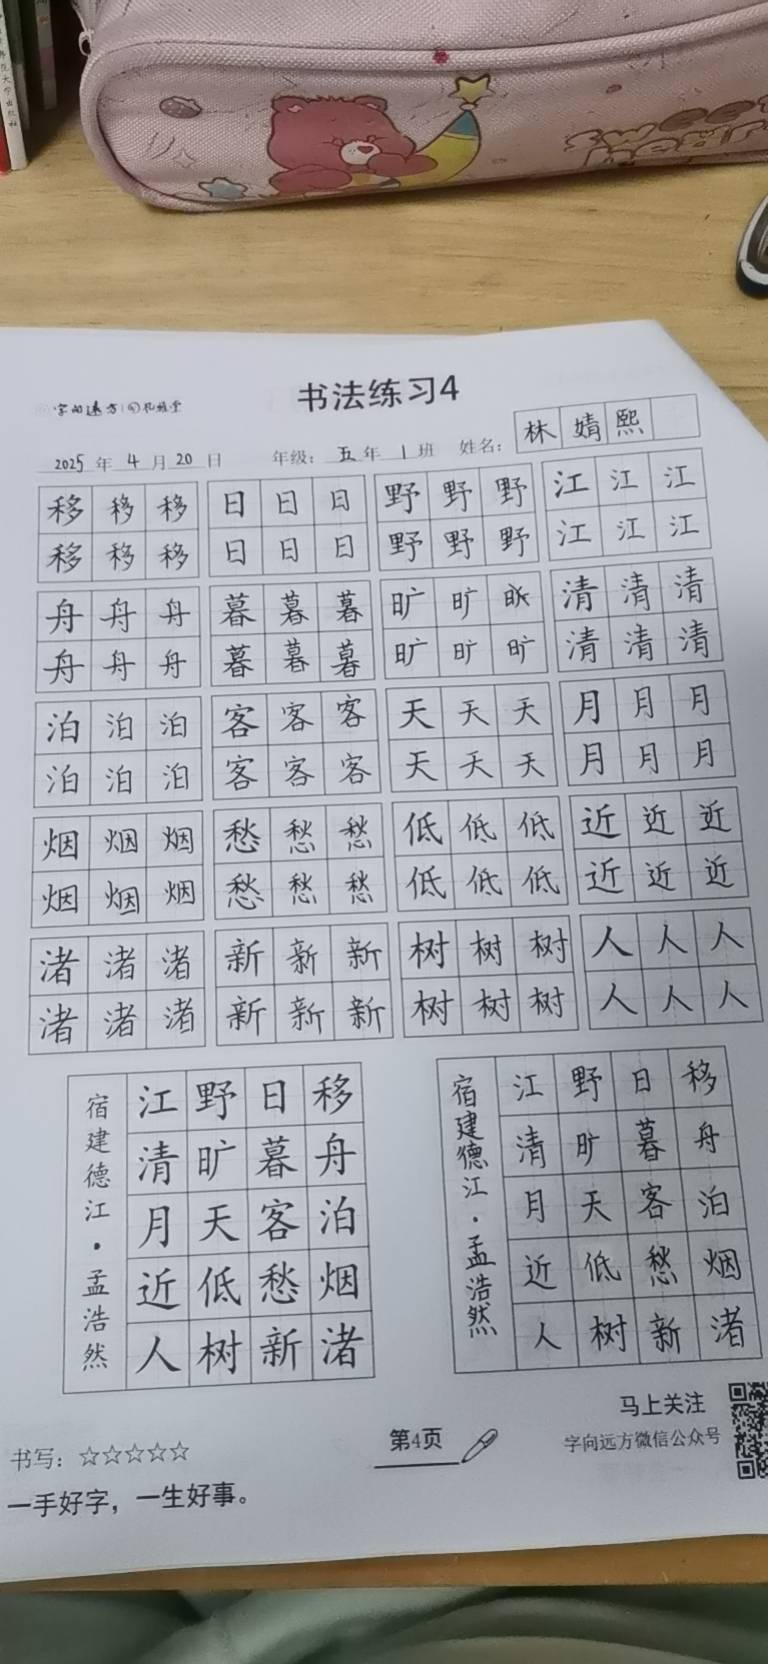 书法练习4
2025 年 4 月 20 日 年级: 五 年 1 班 姓名: 林婧熙
移移移 日日日 野野野 江江江
移移移 日日日 野野野 江江江
舟舟舟 暮暮暮 旷旷 清清清
舟舟舟 暮暮暮 旷旷旷 清清清
泊泊泊 客客客 天天天 月月月
泊泊泊 客客客 天天天 月月月
烟烟烟 愁愁愁 低低低 近近近
烟烟烟 愁愁愁 低低低 近近近
渚渚渚 新新新 树树树 人人人
渚渚渚 新新新 树树树 人人人
移舟泊烟渚
日暮客愁新
野旷天低树
江清月近人
宿建德江·孟浩然
移舟泊烟渚
日暮客愁新
野旷天低树
江清月近人
宿建德江·孟浩然
书写: ☆☆☆☆☆
一手好字，一生好事。
第4页
马上关注
字向远方微信公众号